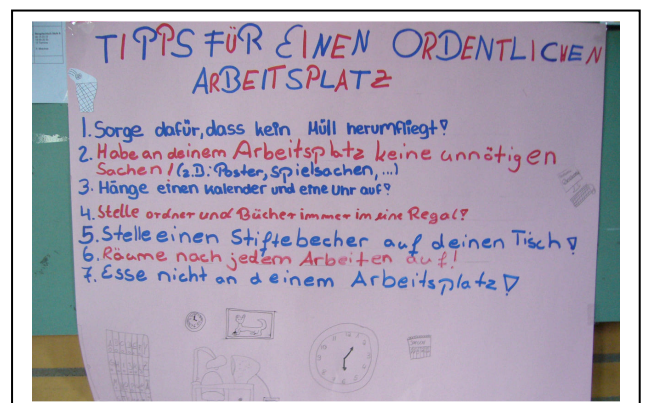 TIPPS FÜR EINEN ORDENTLICHEN
ARBEITSPLATZ
1. Sorge dafür, dass kein Müll herumfliegt!
2. Habe an deinem Arbeitsplatz keine unnötigen
Sachen! (z.B.: Poster, Spielsachen, ...)
3. Hänge einen Kalender und eine Uhr auf!
4. Stelle ordner und Bücher immer in eine Regal!
5. Stelle einen Stiftebecher auf deinen Tisch!
6. Räume nach jedem Arbeiten auf!
7. Esse nicht an deinem Arbeitsplatz!